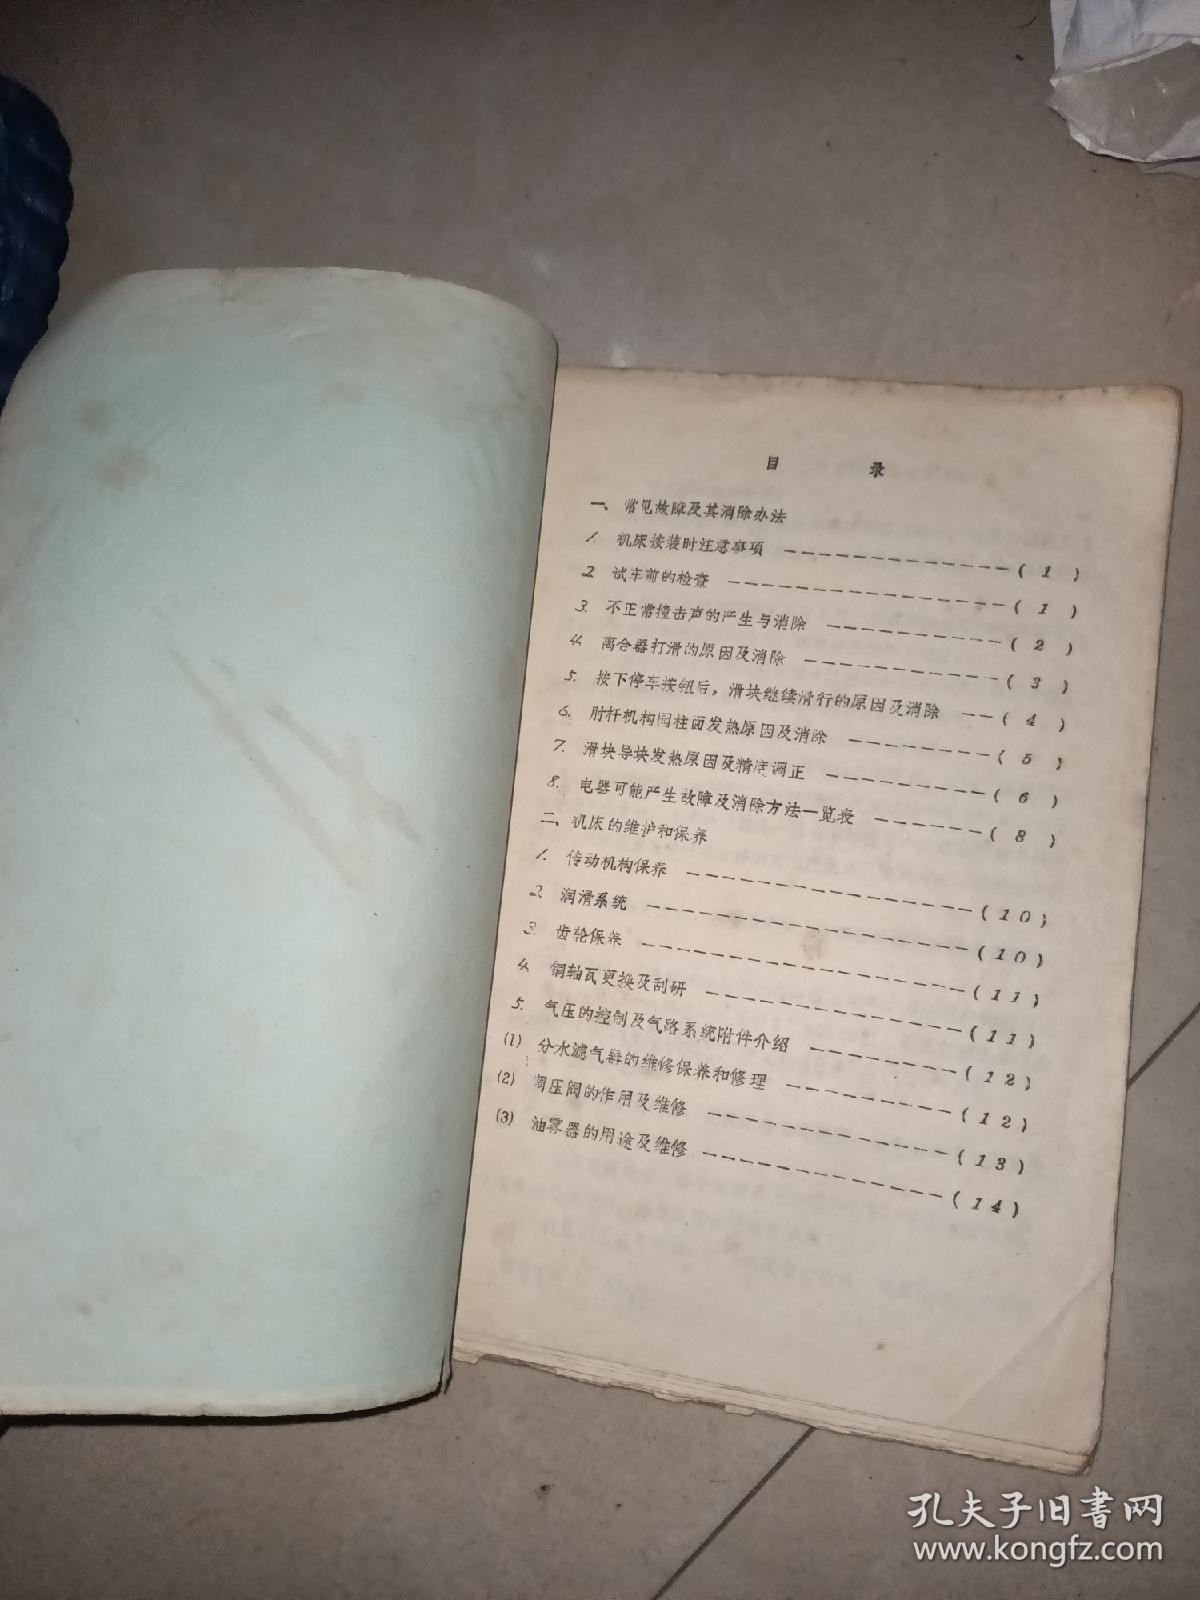 目 录
一、常见故障及其消除办法
1. 机床按装时注意事项 ———————————— ( 1 )
2. 试车前的检查 ———————————— ( 1 )
3. 不正常撞击声的产生与消除 ———————————— ( 2 )
4. 离合器打滑的原因及消除 ———————————— ( 3 )
5. 按下停车按钮后，滑块继续滑行的原因及消除 —— ( 4 )
6. 肘杆机构园柱面发热原因及消除 ———————— ( 5 )
7. 滑块导块发热原因及精度调正 ———————— ( 6 )
8. 电器可能产生故障及消除方法一览表 —————— ( 8 )
二、机床的维护和保养
1. 传动机构保养 ———————————— (10)
2. 润滑系统 ———————————— (10)
3. 齿轮保养 ———————————— (11)
4. 铜轴瓦更换及刮研 ———————————— (11)
5. 气压的控制及气路系统附件介绍 ———————— (12)
(1) 分水滤气器的维修保养和修理 ———————— (12)
(2) 调压阀的作用及维修 ———————————— (13)
(3) 油雾器的用途及维修 ———————————— (14)
孔夫子旧书网
www.kongfz.com